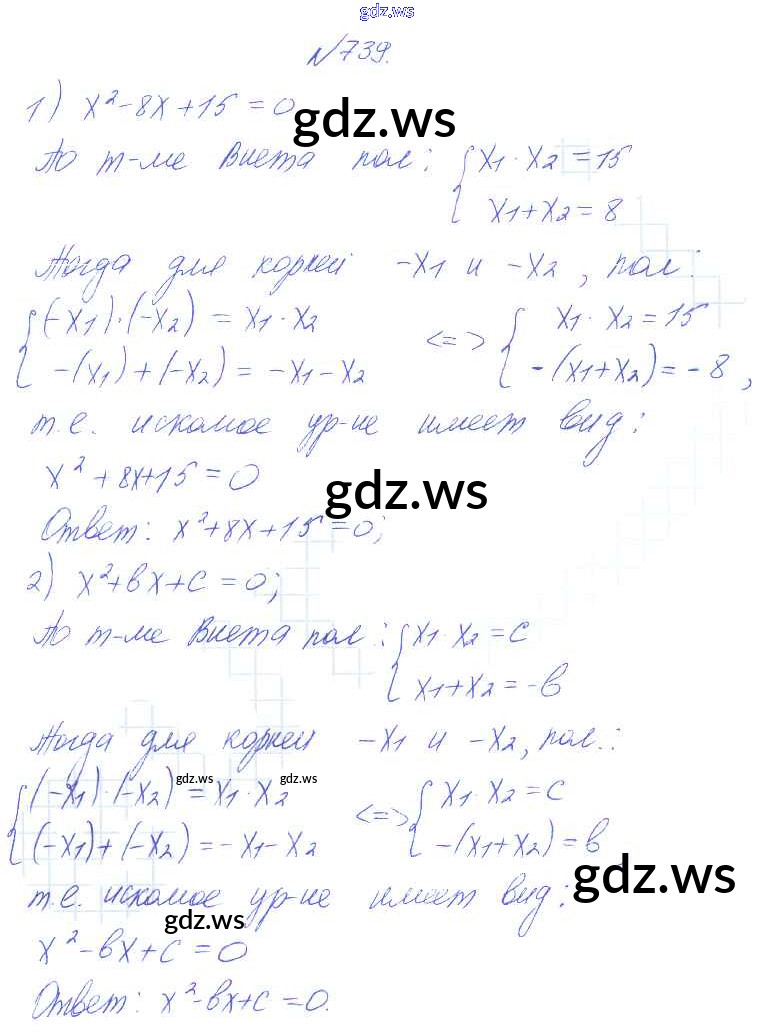 gdz.ws
№739.
1) x²-8x+15=0
gdz.ws
По т-ме Виета пол: { x1·x2=15
x1+x2=8
Тогда для корней -x1 и -x2, пол:
{ (-x1)·(-x2) = x1·x2 <=> { x1·x2=15
-(x1)+(-x2) = -x1-x2 -(x1+x2)=-8,
т.е. искомое ур-ие имеет вид:
x²+8x+15=0
gdz.ws
Ответ: x²+8x+15=0;
2) x²+bx+c=0;
По т-ме Виета пол: { x1·x2=c
x1+x2=-b
Тогда для корней -x1 и -x2, пол.:
gdz.ws gdz.ws
{ (-x1)·(-x2)=x1·x2 <=> { x1·x2=c
(-x1)+(-x2)=-x1-x2 -(x1+x2)=b
gdz.ws
т.е. искомое ур-ие имеет вид:
gdz.ws
x²-bx+c=0
Ответ: x²-bx+c=0.